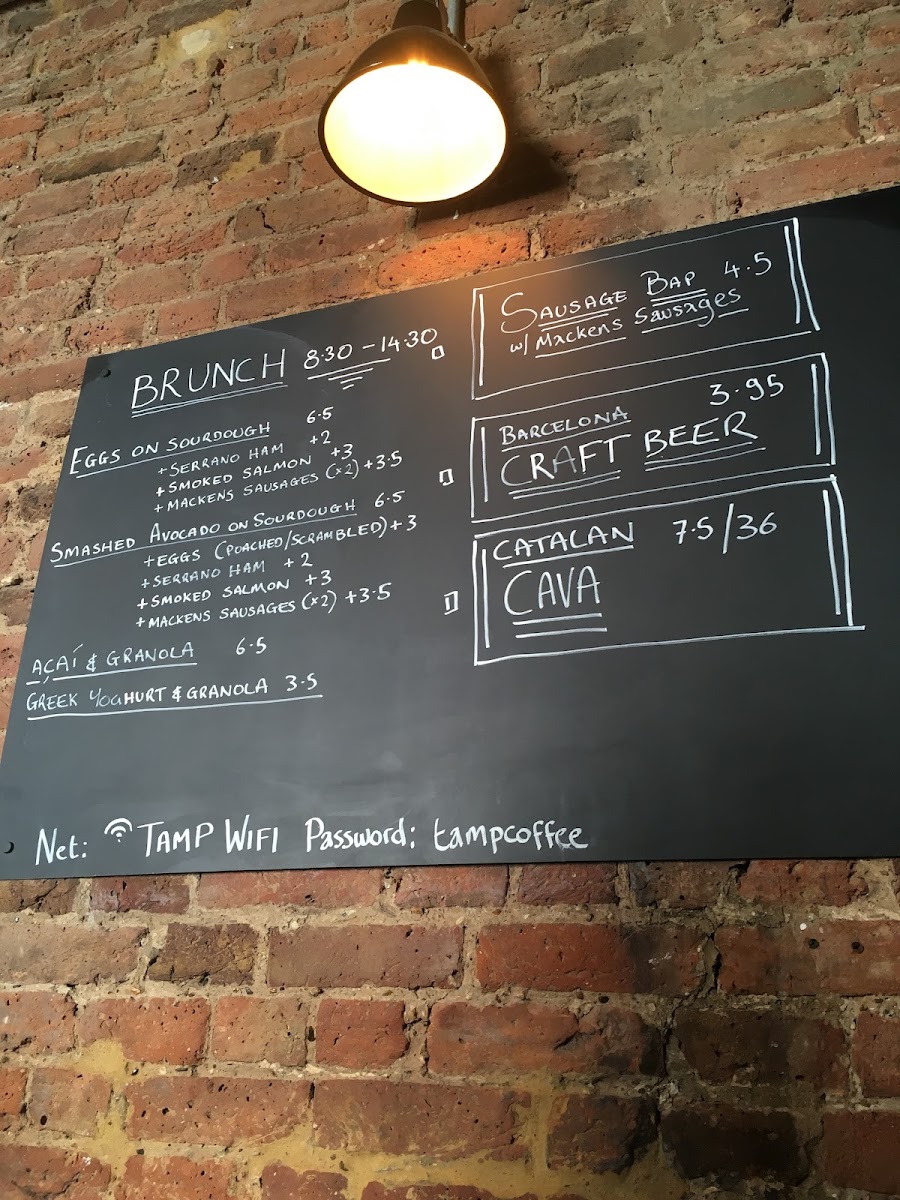 BRUNCH 8.30 - 14.30
EGGS ON SOURDOUGH 6.5
+ SERRANO HAM +2
+ SMOKED SALMON +3
+ MACKENS SAUSAGES (x2) +3.5
SMASHED AVOCADO ON SOURDOUGH 6.5
+ EGGS (POACHED/SCRAMBLED) +3
+ SERRANO HAM +2
+ SMOKED SALMON +3
+ MACKENS SAUSAGES (x2) +3.5
AÇAÍ & GRANOLA 6.5
GREEK YOGHURT & GRANOLA 3.5
SAUSAGE BAP 4.5
w/ Mackens Sausages
BARCELONA 3.95
CRAFT BEER
CATALAN 7.5/36
CAVA
Net: TAMP WIFI Password: tampcoffee